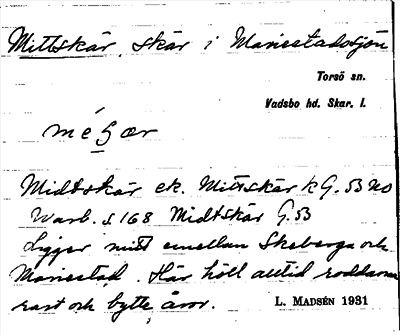 Mittskär, skär i Mariestadssjön
Torsö sn.
Vadsbo hd. Skar. l.
Midtskär ek. Mittskär k G. 53 NO
Warb. s 168 Midtskär G. 53
Ligger midt emellan Skeberga och
Mariestad. Här höll alltid roddarna
rast och bytte åror. L. MADSÉN 1931